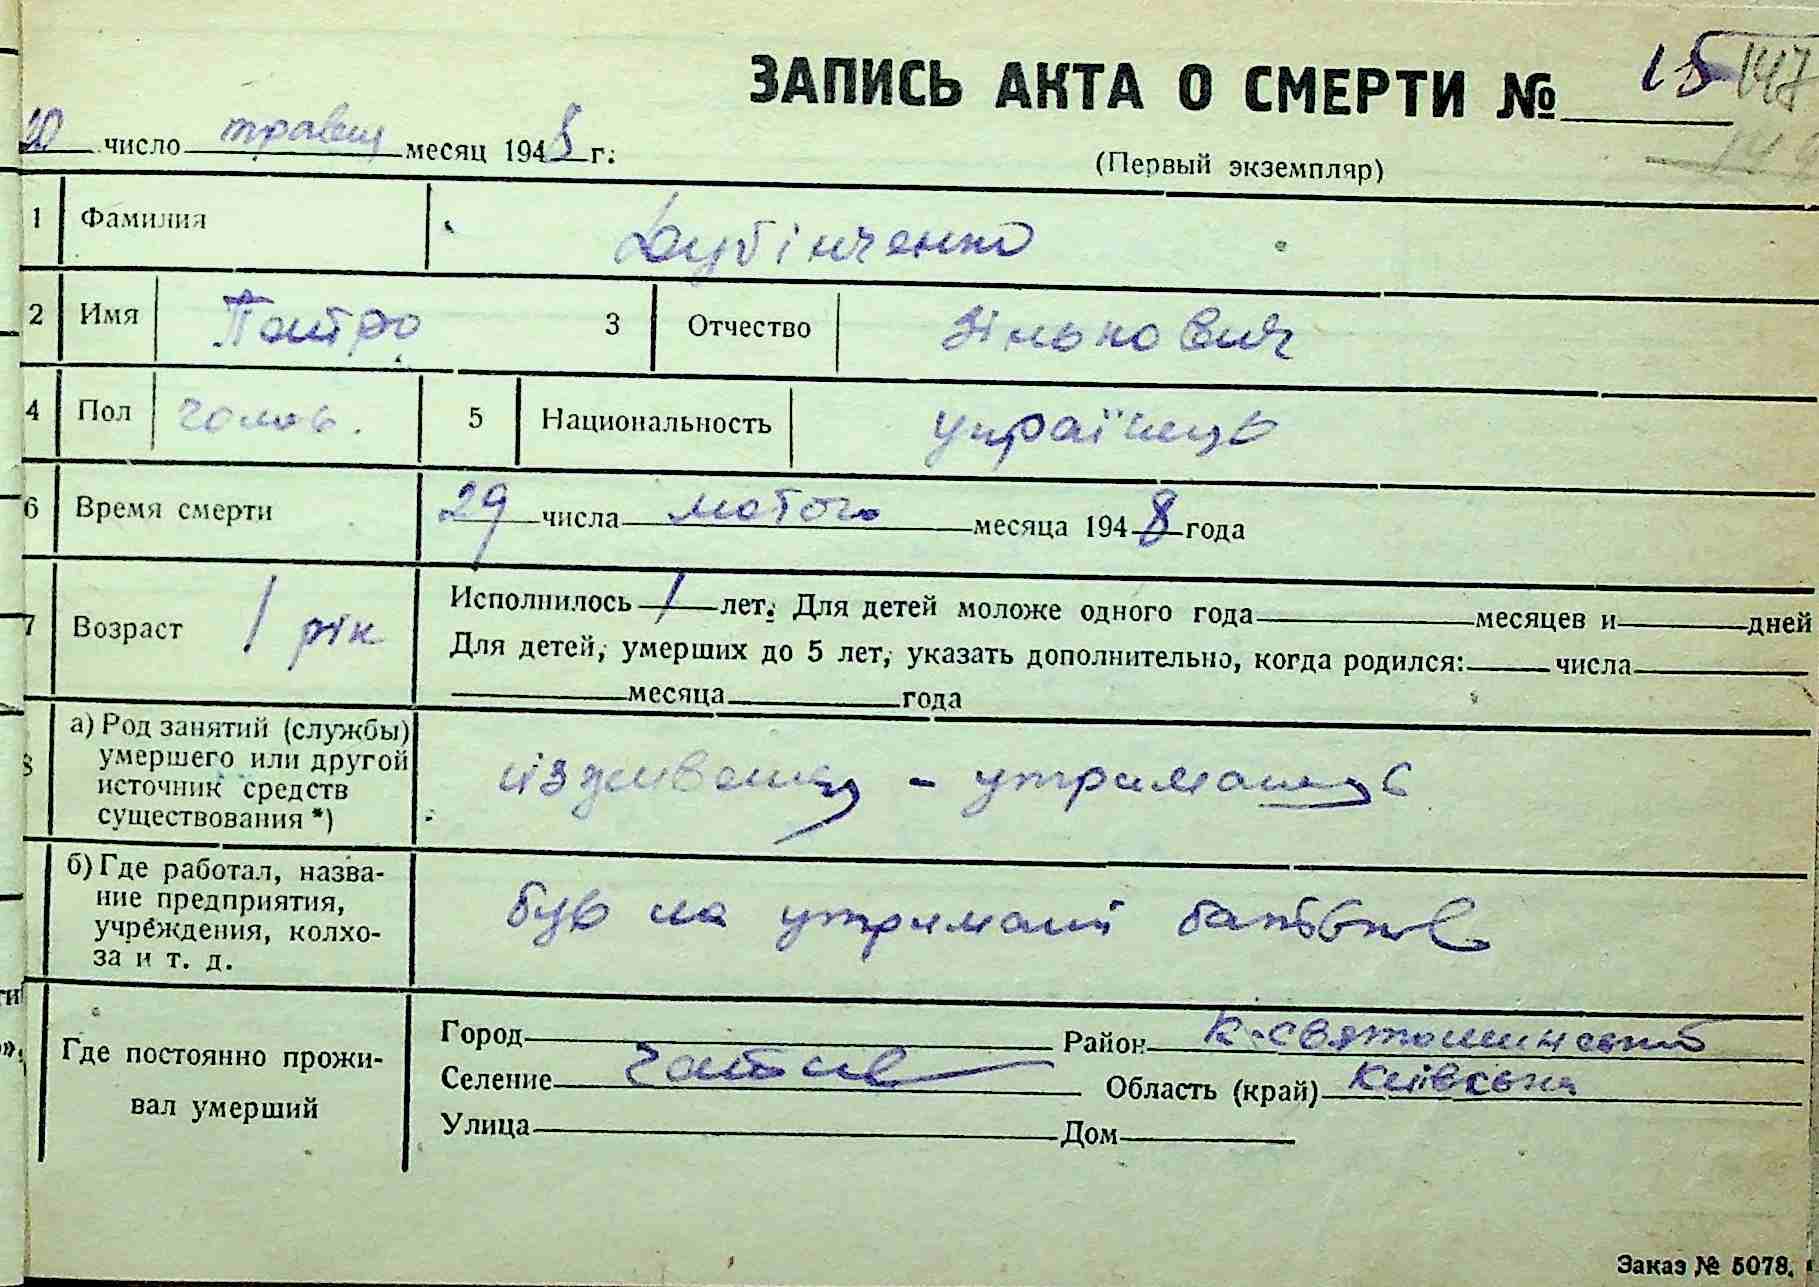 ЗАПИСЬ АКТА О СМЕРТИ № 15 147
20 число травня месяц 1948 г.
(Первый экземпляр)
1 Фамилия Дубінченко
2 Имя Петро 3 Отчество Зінькович
4 Пол чолов. 5 Национальность українець
6 Время смерти 29 числа лютого месяца 1948 года
7 Возраст 1 рік Исполнилось 1 лет. Для детей моложе одного года месяцев и дней
Для детей, умерших до 5 лет, указать дополнительно, когда родился: числа
месяца года
8 а) Род занятий (службы)
умершего или другой
источник средств
существования *)
- утриманець
б) Где работал, назва-
ние предприятия,
учреждения, колхо-
за и т. д.
був на утримані батьків
Где постоянно прожи-
вал умерший
Город Район К-Святошинський
Селение Область (край) Київська
Улица Дом
Заказ № 5078.